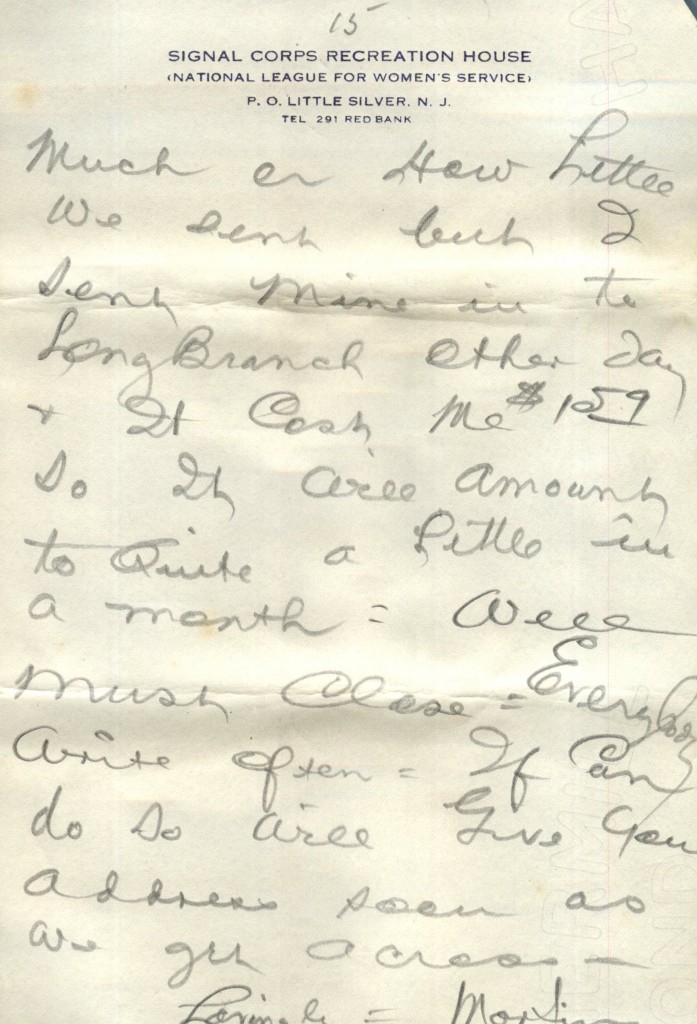 15
SIGNAL CORPS RECREATION HOUSE
(NATIONAL LEAGUE FOR WOMEN'S SERVICE)
P. O. LITTLE SILVER, N. J.
TEL 291 RED BANK
Much or How Little
We sent but I
sent mine in to
Long Branch other day
+ It Cost me $1.59
So It will amount
to Quite a little in
a month = Well
must Close = Everybody
write often = If Can
do so will Give You
address soon as
we get across —
Lovingly =